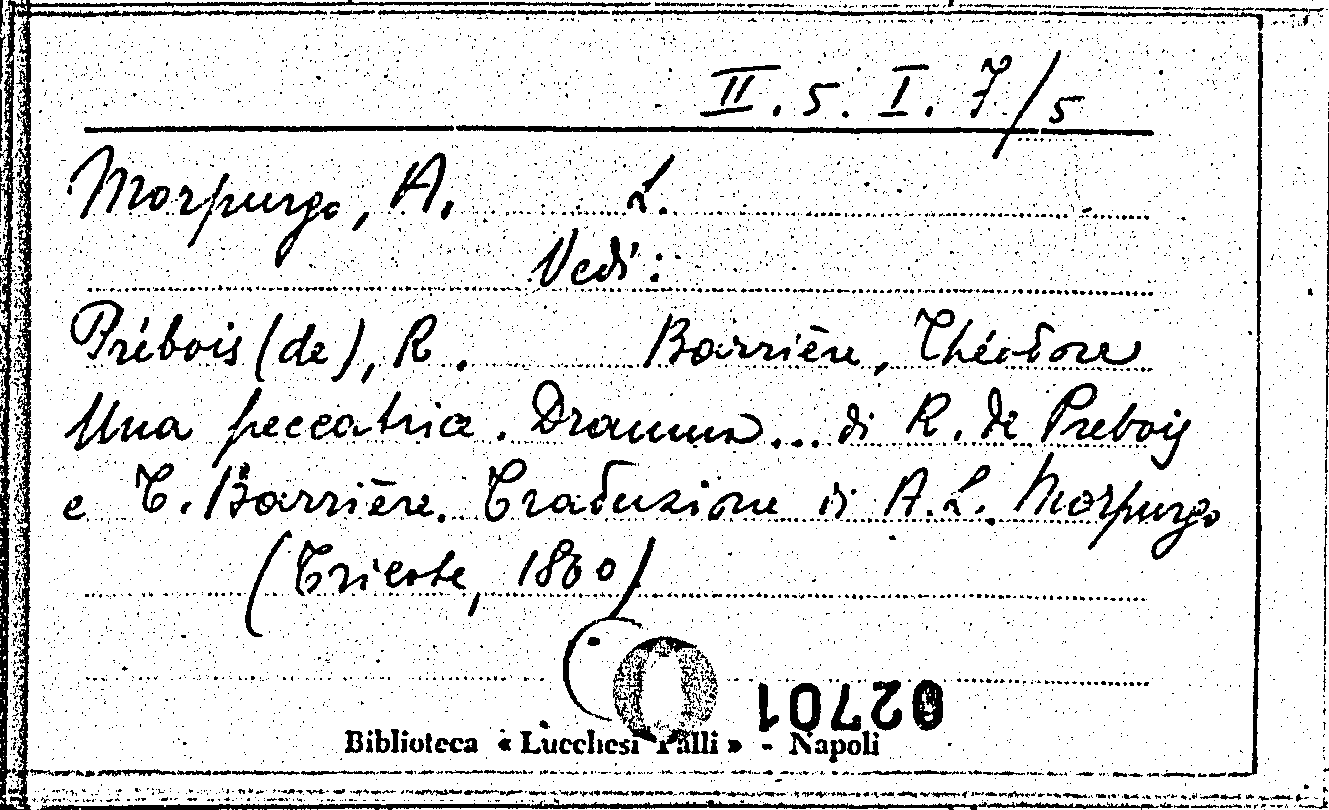 II. 5. I. 7/5
Morpurgo, A. L.
Vedi:
Prébois (de), R. Barrière, Théodore
Una peccatrice. Dramma... di R. de Prebois
e T. Barrière. Traduzione di A.L. Morpurgo
(Trieste, 1860)
02701
Biblioteca « Lucchesi Palli » - Napoli